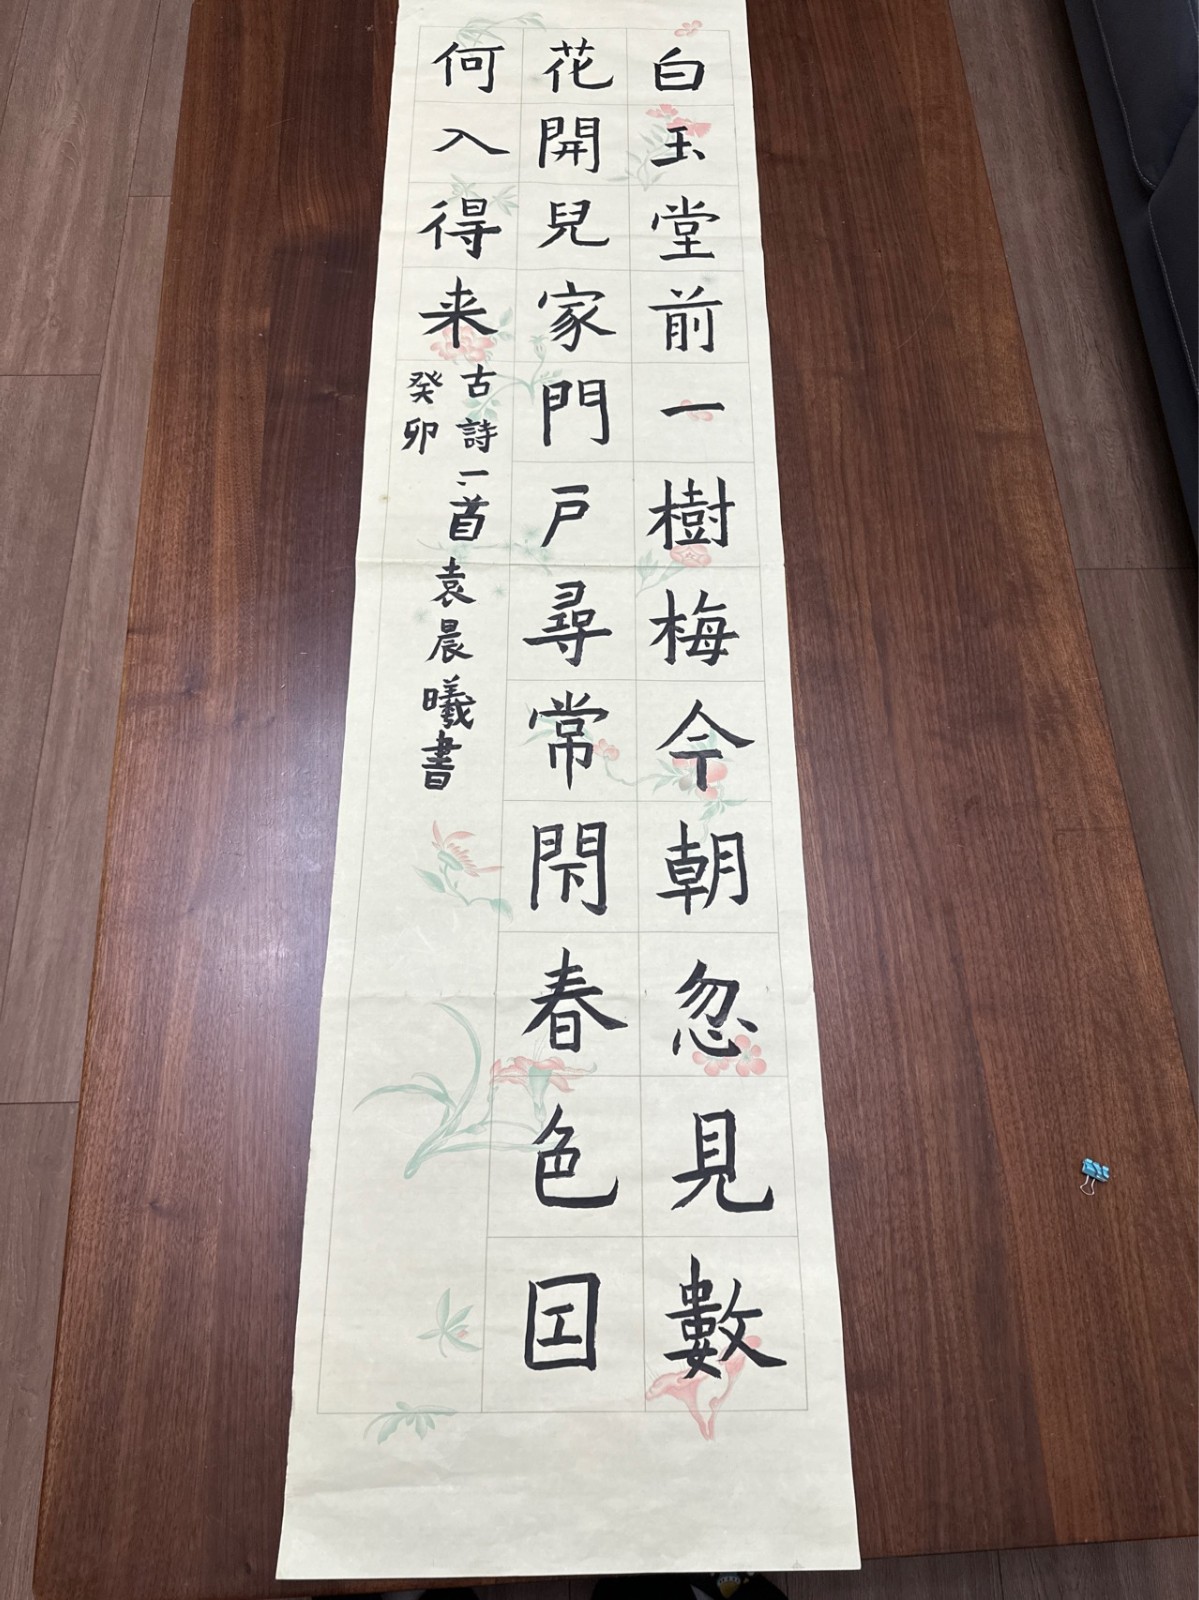 白玉堂前一樹梅今朝忽見數
花開兒家門戸尋常閇春色囙
何入得来
古詩一首袁晨曦書
癸卯